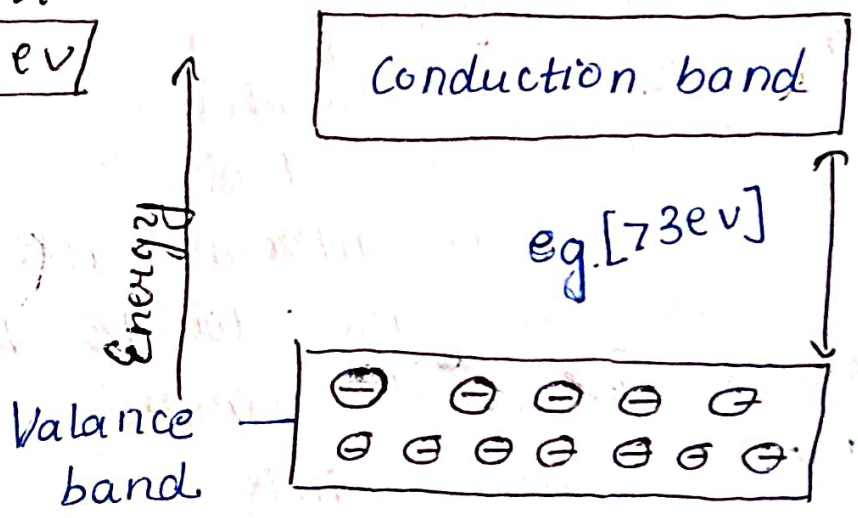 ev
Conduction band
Energy
eg.[73ev]
Valance
band